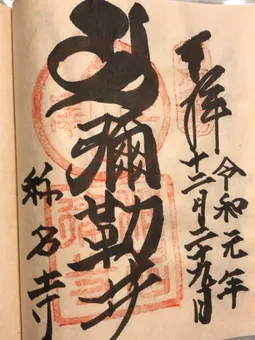 奉拝
令和元年
十二月二十九日
彌勒
称名寺